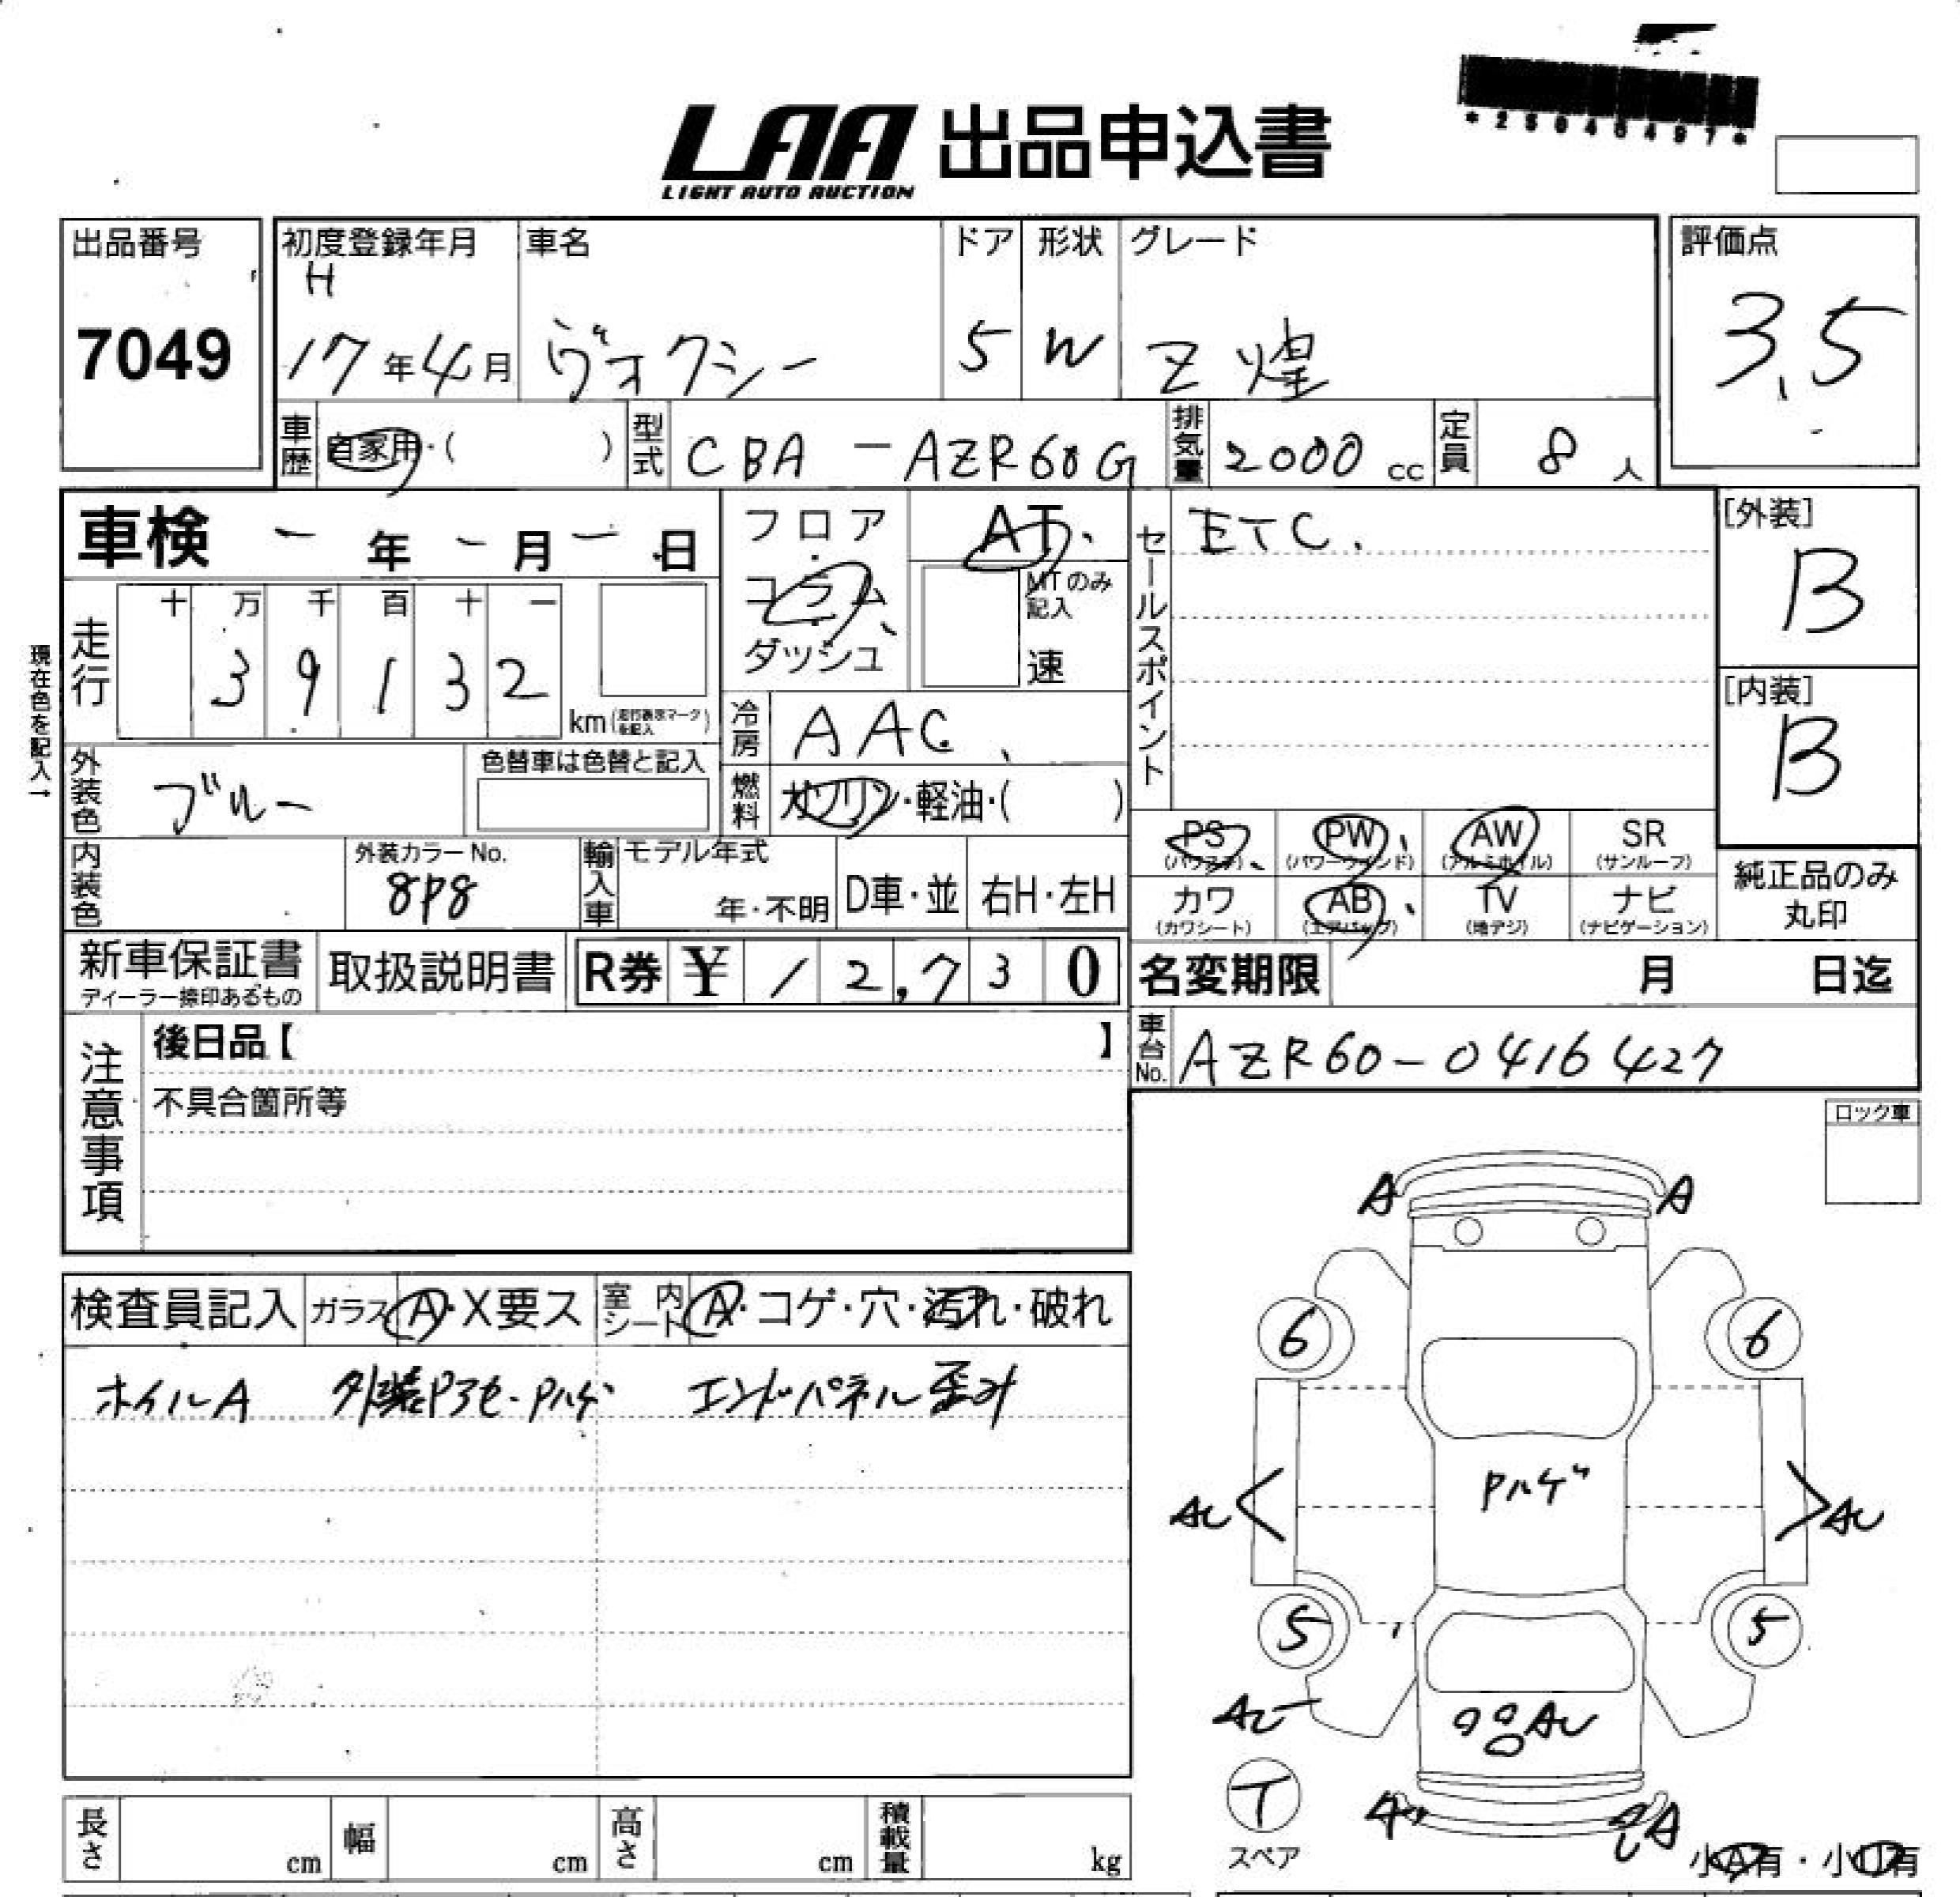 *25040497*
LAA 出品申込書
LIGHT AUTO AUCTION
出品番号
7049
初度登録年月 車名 ドア 形状 グレード
H
17年4月 ヴォクシー 5 W Z煌
評価点
3.5
車歴 自家用・( ) 型式 CBA-AZR60G 排気量 2000cc 定員 8人
車検 - 年 - 月 - 日
フロア
コラム
ダッシュ
AT
MTのみ記入
速
セールスポイント
ETC.
[外装]
B
[内装]
B
現在色を記入→
走行 十 万 千 百 十 一
3 9 1 3 2 km(走行表示マークを記入)
冷房 AAC
外装色 ブルー 色替車は色替と記入
燃料 ガソリン・軽油・( )
PS (パワステ) PW (パワーウインド) AW (アルミホイル) SR (サンルーフ)
カワ (カワシート) AB (エアバッグ) TV (地デジ) ナビ (ナビゲーション)
純正品のみ
丸印
内装色 外装カラーNo. 8P8 輸入車 モデル年式 年・不明 D車・並 右H・左H
新車保証書 ディーラー捺印あるもの 取扱説明書 R券 ¥ 12,730
名変期限 月 日迄
車台No. AZR60-0416427
注意事項
後日品【 】
不具合箇所等
ロック車
検査員記入 ガラス A・X要ス 室内シート A・コゲ・穴・汚れ・破れ
ホイルA 外装Pアセ・Pハゲ エンドパネル歪み
A A
6 6
Pハゲ
AU AU
5 5
AU
AU
T
スペア
A
小A有・小U有
長さ cm 幅 cm 高さ cm 積載量 kg